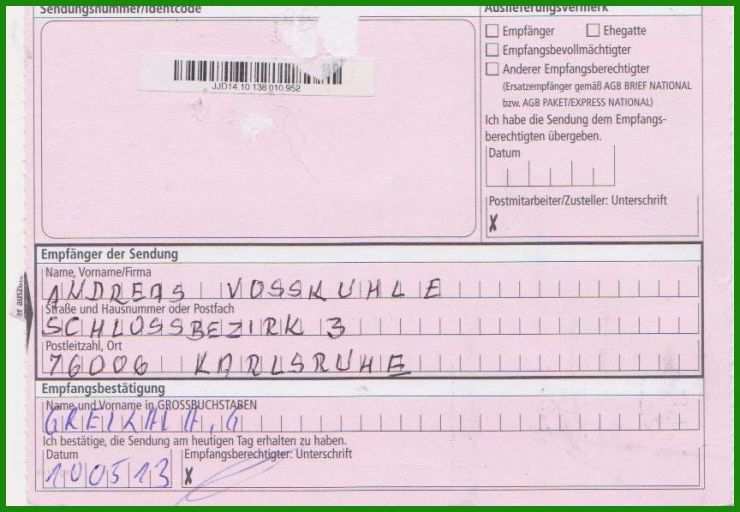 Sendungsnummer/Identcode
JJD14 10 138 010 952
Auslieferungsvermerk
Empfänger Ehegatte
Empfangsbevollmächtigter
Anderer Empfangsberechtigter
(Ersatzempfänger gemäß AGB BRIEF NATIONAL
bzw. AGB PAKET/EXPRESS NATIONAL)
Ich habe die Sendung dem Empfangs-
berechtigten übergeben.
Datum
Postmitarbeiter/Zusteller: Unterschrift
X
Empfänger der Sendung
Name, Vorname/Firma
ANDREAS VOSSKUHLE
Straße und Hausnummer oder Postfach
SCHLOSSBEZIRK 3
Postleitzahl, Ort
76006 KARLSRUHE
Empfangsbestätigung
Name und Vorname in GROSSBUCHSTABEN
Ich bestätige, die Sendung am heutigen Tag erhalten zu haben.
Datum Empfangsberechtigter: Unterschrift
100513 X